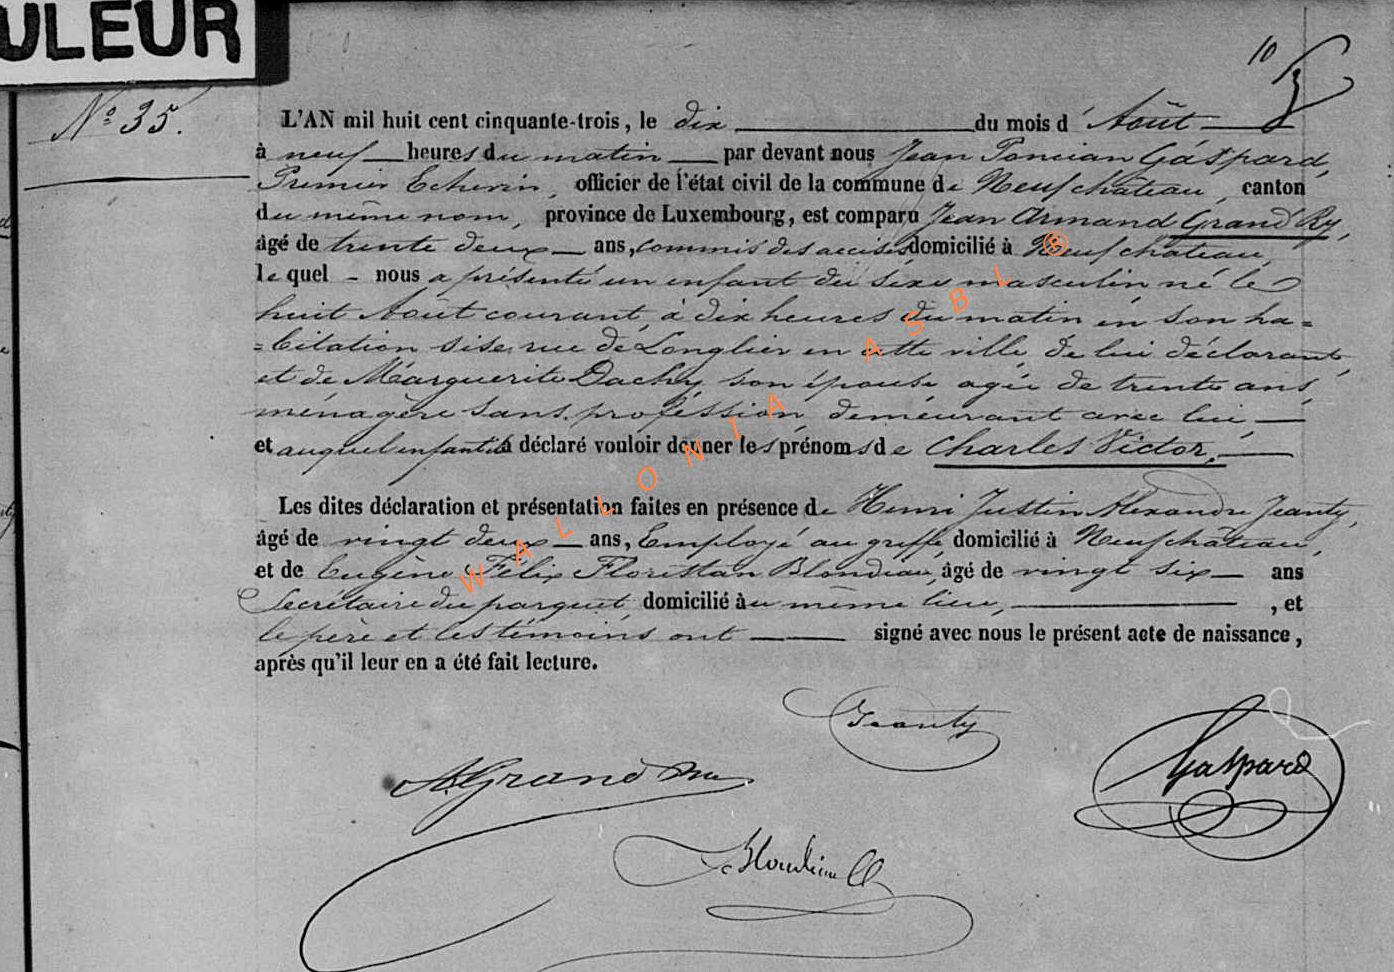 ULEUR
10
Nº 35.
L'AN mil huit cent cinquante-trois, le dix du mois d'Août
à neuf heures du matin par devant nous Jean Poncian Gaspard,
Premier Echevin, officier de l'état civil de la commune de Neufchâteau, canton
du même nom, province de Luxembourg, est comparu Jean Armand Grand Ry,
âgé de trente deux ans, commis des accises, domicilié à Neufchâteau,
le quel nous a présenté un enfant du sexe masculin né le
huit Août courant, à dix heures du matin en son ha=
=bitation sise rue de Longlier en cette ville, de lui déclarant
et de Marguerite Dachy son épouse agée de trente ans,
ménagère sans profession, demeurant avec lui,
et auquel enfant il a déclaré vouloir donner les prénoms de Charles Victor.
Les dites déclaration et présentation faites en présence de Henri Justin Alexandre Jeanty,
âgé de vingt deux ans, Employé au greffe, domicilié à Neufchâteau,
et de Eugène Félix Floristan Blondiau, âgé de vingt six ans
Secrétaire du parquet, domicilié au même lieu, , et
le père et les témoins ont signé avec nous le présent acte de naissance,
après qu'il leur en a été fait lecture.
Jeanty
Gaspard
A. Grand Ry
WALLONIA ASBL ®